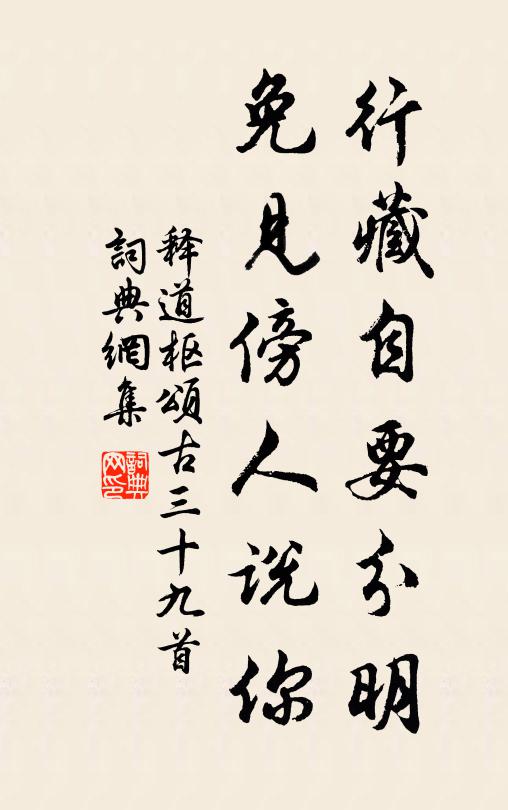 行藏自要分明
免見傍人说你
释道枢頌古三十九首
詞典網集
詞典網印